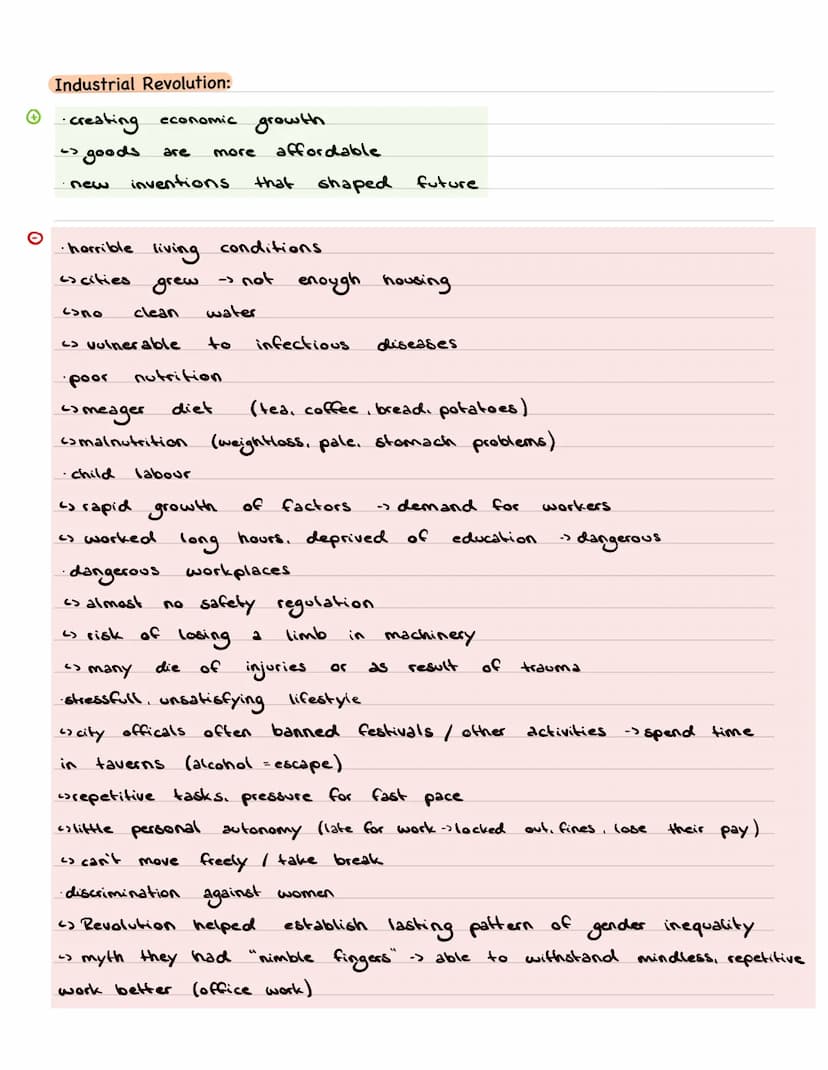 Industrial Revolution:
+
· creating economic growth
↳ goods are more affordable
· new inventions that shaped future
-
· horrible living conditions
↳ cities grew → not enough housing
↳ no clean water
↳ vulnerable to infectious diseases
· poor nutrition
↳ meager diet (tea, coffee, bread, potatoes)
↳ malnutrition (weightloss, pale, stomach problems)
· child labour
↳ rapid growth of factors → demand for workers
↳ worked long hours, deprived of education → dangerous
· dangerous workplaces
↳ almost no safety regulation
↳ risk of losing a limb in machinery
↳ many die of injuries or as result of trauma
· stressfull, unsatisfying lifestyle
↳ city officals often banned festivals / other activities → spend time
in taverns (alcohol = escape)
↳ repetitive tasks, pressure for fast pace
↳ little personal autonomy (late for work → locked out, fines, lose their pay)
↳ can't move freely / take break
· discrimination against women
↳ Revolution helped establish lasting pattern of gender inequality
↳ myth they had "nimble fingers" → able to withstand mindless, repetitive
work better (office work)